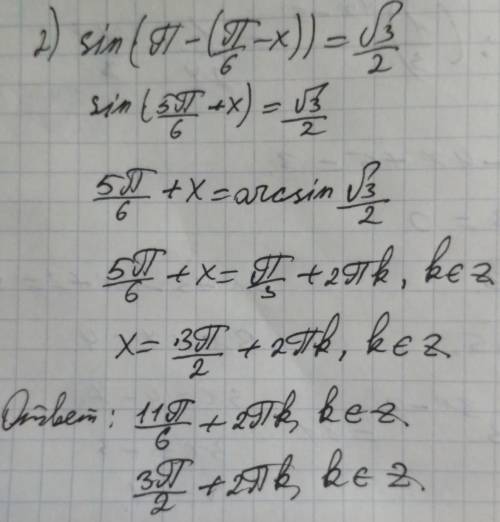 2) sin(π-(π/6-x))=√3/2
sin(5π/6+x)=√3/2
5π/6+x=arcsin √3/2
5π/6+x=π/3+2πk, k∈z
x=3π/2+2πk, k∈z
Ответ: 11π/6+2πk, k∈z
3π/2+2πk, k∈z.